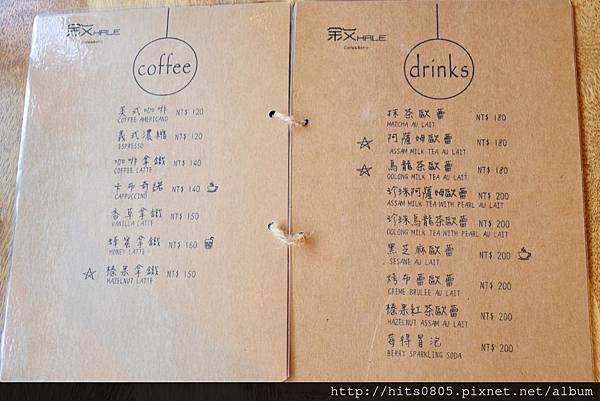 HALE
coffee
美式咖啡 NT$ 120
COFFEE AMERICANO
義式濃縮 NT$ 120
ESPRESSO
咖啡拿鐵 NT$ 140
COFFEE LATTE
卡布奇諾 NT$ 140
CAPPUCCINO
香草拿鐵 NT$ 150
VANILLA LATTE
蜂蜜拿鐵 NT$ 160
HONEY LATTE
榛果拿鐵 NT$ 150
HAZELNUT LATTE
HALE
drinks
抹茶歐蕾 NT$ 180
MATCHA AU LAIT
阿薩姆歐蕾 NT$ 180
ASSAM MILK TEA AU LAIT
烏龍茶歐蕾 NT$ 180
OOLONG MILK TEA AU LAIT
珍珠阿薩姆歐蕾 NT$ 200
ASSAM MILK TEA WITH PEARL AU LAIT
珍珠烏龍茶歐蕾 NT$ 200
OOLONG MILK TEA WITH PEARL AU LAIT
黑芝麻歐蕾 NT$ 200
SESANE AU LAIT
烤布蕾歐蕾 NT$ 200
CREME BRULEE AU LAIT
榛果紅茶歐蕾 NT$ 200
HAZELNUT ASSAM AU LAIT
莓得冒泡 NT$ 200
BERRY SPARKLING SODA
http://hits0805.pixnet.net/album